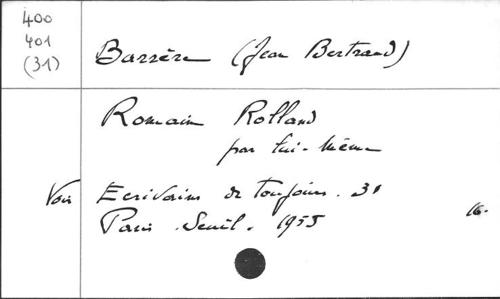 400
401
(31)
Barrère (Jean Bertrand)
Romain Rolland
par lui-même
Voir Ecrivains de toujours. 31
Paris. Seuil. 1955
16.